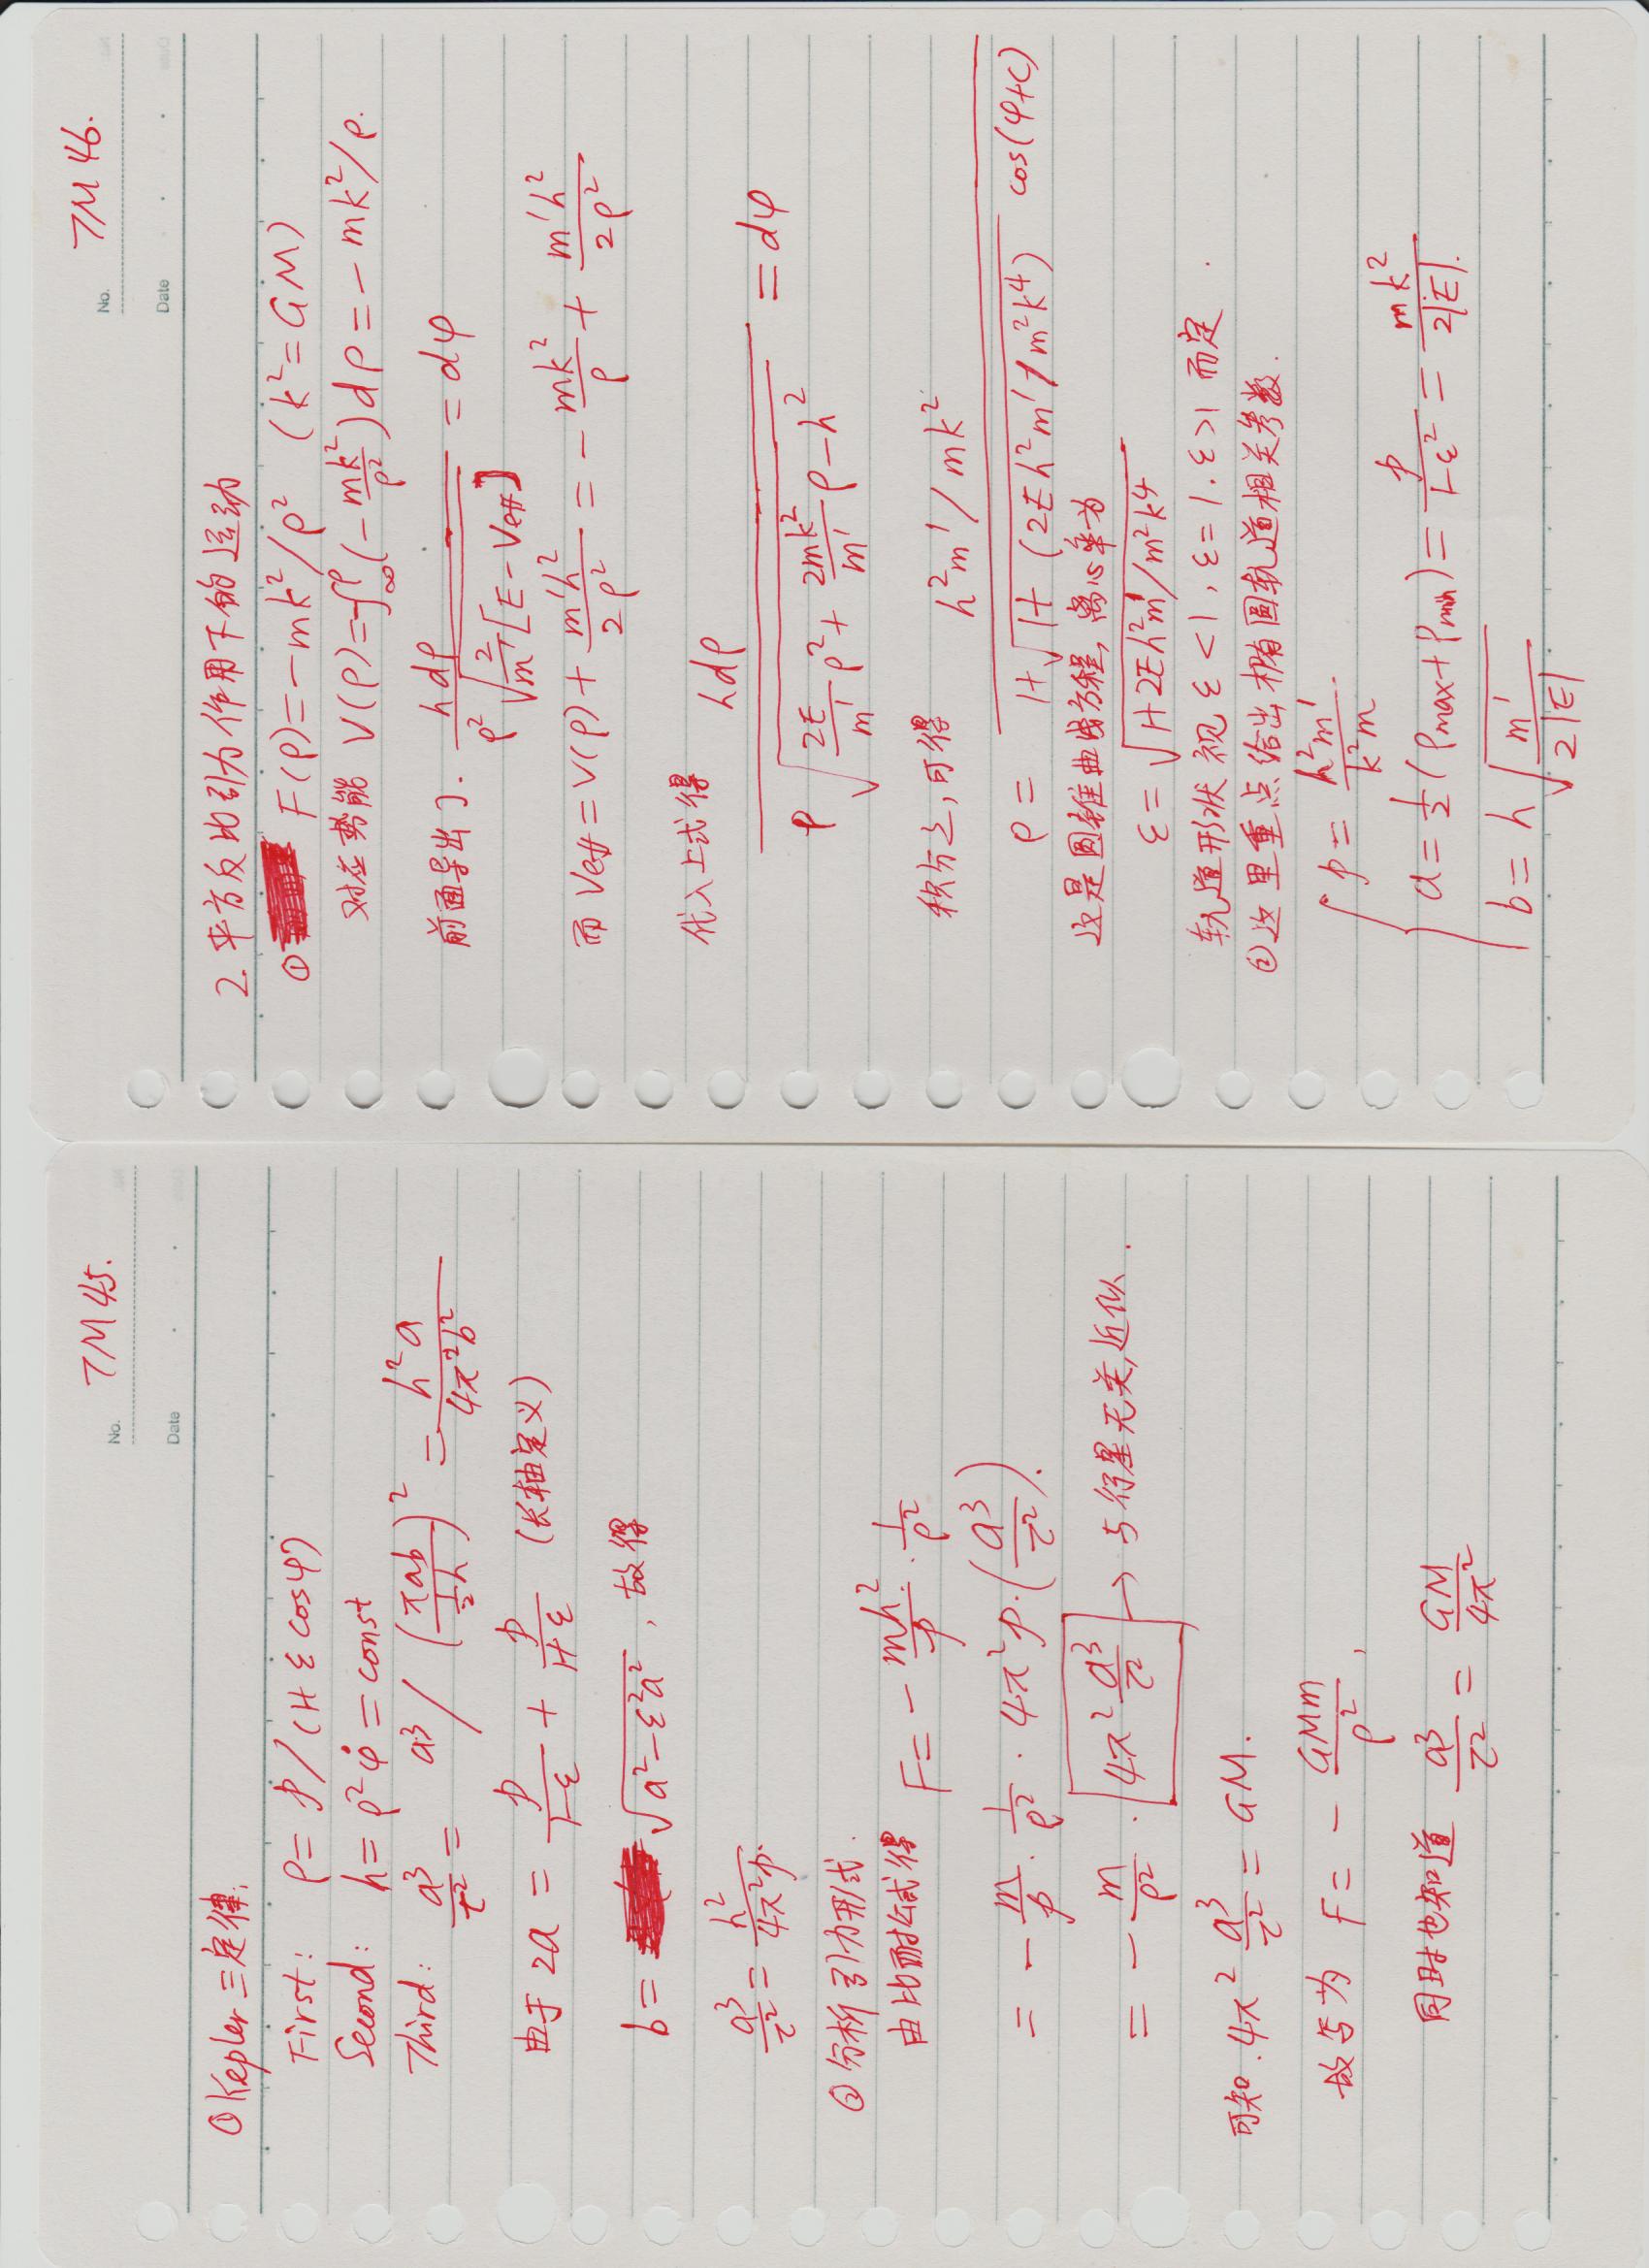 No. TM 45.
Date
① Kepler 三定律:
First: ρ = p / (1+ε cosφ)
Second: h = ρ²φ̇ = const
Third: a³/τ² = a³ / (πab / ½h)² = h²a / 4π²b²
由于 2a = p/(1-ε) + p/(1+ε) (长轴定义)
b = √(a²-ε²a²), 故得
a³/τ² = h²/4π²p.
② 分析引力形式.
由比耐公式得 F = - mh²/p · 1/ρ²
= - m/p · 1/ρ² · 4π²p · (a³/τ²).
= - m/ρ² · 4π² a³/τ² → 与行星无关,近似.
可知. 4π² a³/τ² = GM.
故写为 F = - GMm/ρ²,
同时也知道 a³/τ² = GM/4π²
No. TM 46.
Date
2. 平方反比引力作用下的运动
① F(ρ) = -mk²/ρ² (k² = GM)
对应势能 V(ρ) = -∫∞^ρ (-mk²/ρ²) dρ = -mk²/ρ.
前面导出了. hdρ / ρ²√(2/m' [E-Veff]) = dφ
而 Veff = V(ρ) + m'h²/2ρ² = - mk²/ρ + m'h²/2ρ²
代入上式得 hdρ / ρ√(2E/m' ρ² + 2mk²/m' ρ - h²) = dφ
积分之,可得
ρ = h²m'/mk² / 1+√(1+(2Eh²m'/m²k⁴)) cos(φ+C)
这是圆锥曲线方程, 离心率为
ε = √(1+2Eh²m'/m²k⁴)
轨道形状视 ε<1, ε=1. ε>1 而定.
② 这里重点给出椭圆轨道相关参数.
p = h²m'/k²m
a = ½(ρmax+ρmin) = p/(1-ε²) = mk²/2|E|.
b = h√(m'/2|E|)